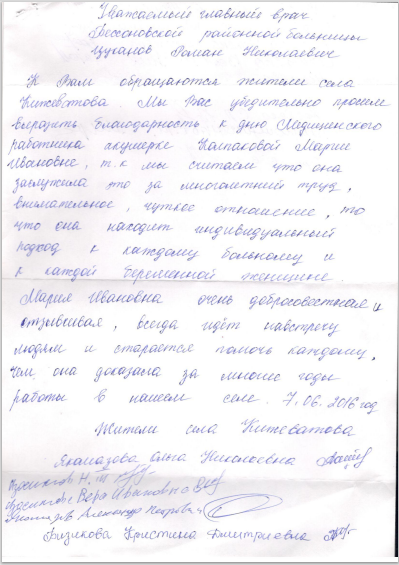 Уважаемый главный врач
Бессоновской районной больницы
Цуканов Роман Николаевич
К Вам обращаются жители села
Кижеватова. Мы Вас убедительно просим
выразить благодарность к дню Медицинского
работника акушерке Колпаковой Марие
Ивановне, т.к мы считаем что она
заслужила это за многолетний труд,
внимательное, чуткое отношение, то
что она находит индивидуальный
подход к каждому больному и
к каждой беременной женщине.
Мария Ивановна очень добросовестная и
отзывчивая, всегда идёт навстречу
людям и старается помочь каждому,
чем она доказала за многие годы
работы в нашем селе. 7.06.2016 год
Жители села Кижеватова
Ольга Николаевна
Вера
Александр Петрович
Физикова Кристина Дмитриевна